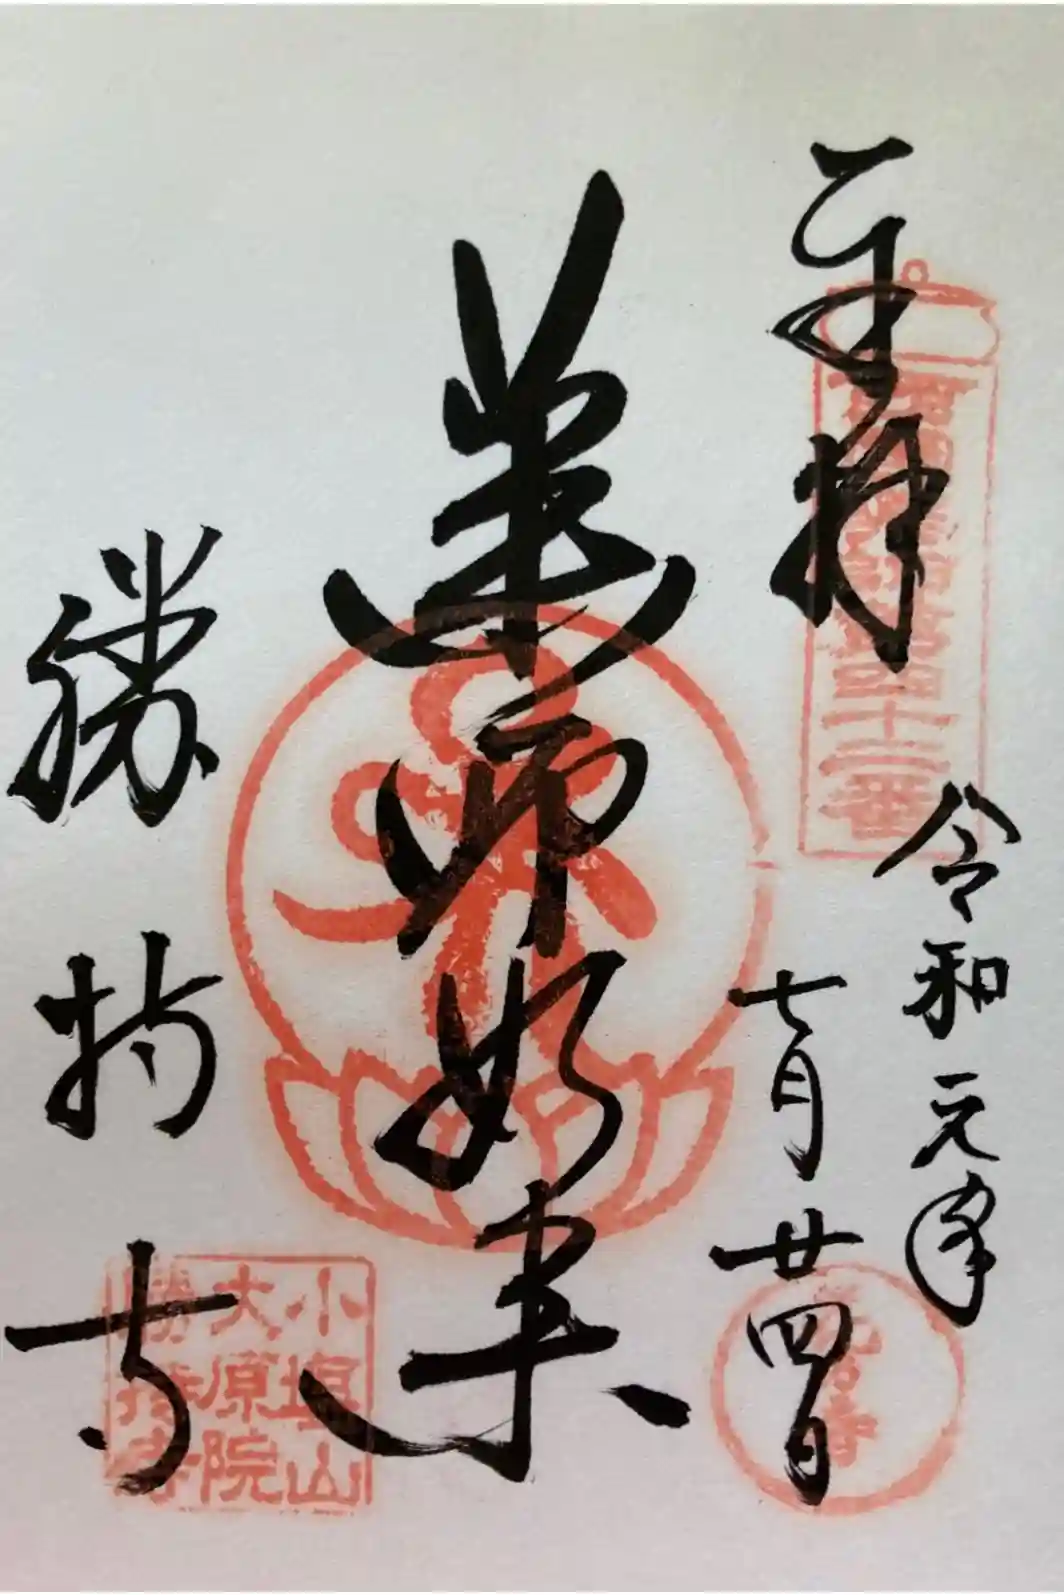 奉拝
令和元年
七月廿四日
薬師如来
勝持寺
西国薬師第四十二番
小塩山
大原院
勝持寺